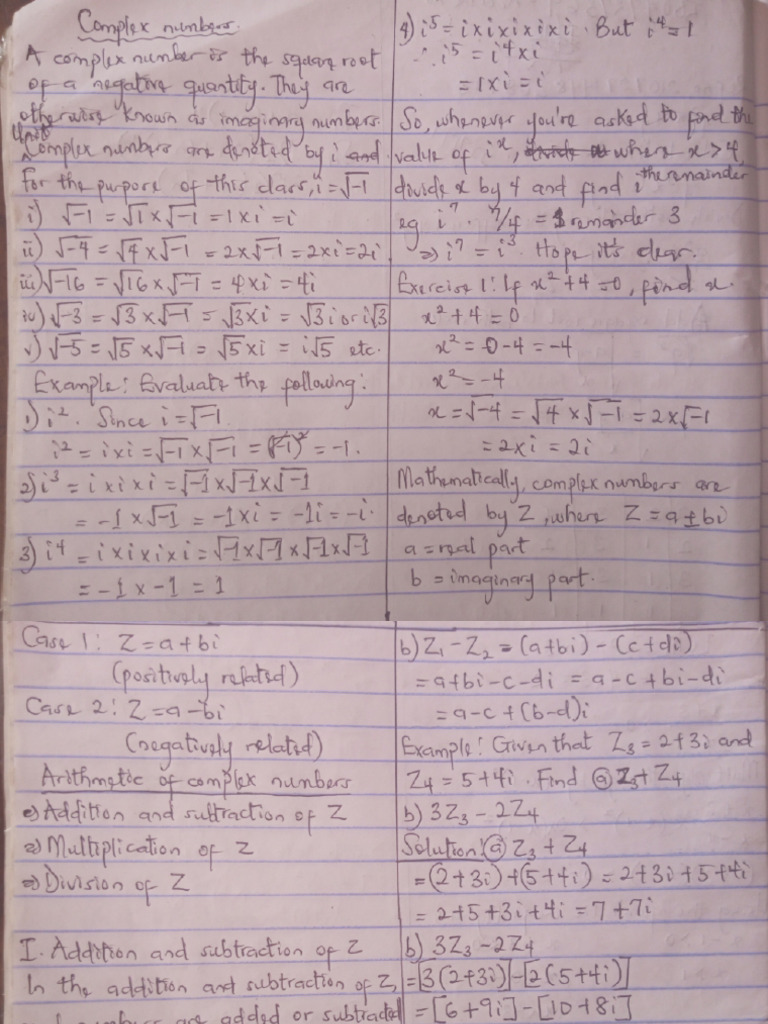 Complex numbers.
A complex number is the square root
of a negative quantity. They are
otherwise known as imaginary numbers.
Complex numbers are denoted by i and
For the purpose of this class, i = √-1
i) √-1 = √1 × √-1 = 1 × i = i
ii) √-4 = √4 × √-1 = 2 × √-1 = 2 × i = 2i
iii) √-16 = √16 × √-1 = 4 × i = 4i
iv) √-3 = √3 × √-1 = √3 × i = √3 i or i√3
v) √-5 = √5 × √-1 = √5 × i = i√5 etc.
Example: Evaluate the following:
1) i². Since i = √-1.
i² = i × i = √-1 × √-1 = (√-1)² = -1.
2) i³ = i × i × i = √-1 × √-1 × √-1
= -1 × √-1 = -1 × i = -1i = -i.
3) i⁴ = i × i × i × i = √-1 × √-1 × √-1 × √-1
= -1 × -1 = 1
4) i⁵ = i × i × i × i × i. But i⁴ = 1
∴ i⁵ = i⁴ × i
= 1 × i = i
So, whenever you're asked to find the
value of iˣ, where x > 4,
divide x by 4 and find i^the remainder
eg i⁷. 7/4 = 1 remainder 3
⇒ i⁷ = i³. Hope it's clear.
Exercise 1: If x² + 4 = 0, find x.
x² + 4 = 0
x² = 0 - 4 = -4
x² = -4
x = √-4 = √4 × √-1 = 2 × √-1
= 2 × i = 2i
Mathematically, complex numbers are
denoted by Z, where Z = a ± bi
a = real part
b = imaginary part.
Case 1: Z = a + bi
(positively related)
Case 2: Z = a - bi
(negatively related)
Arithmetic of complex numbers
⇒ Addition and subtraction of Z
⇒ Multiplication of Z
⇒ Division of Z
I. Addition and subtraction of Z
In the addition and subtraction of Z,
numbers are added or subtracted
b) Z₁ - Z₂ = (a+bi) - (c+di)
= a+bi-c-di = a-c+bi-di
= a-c+(b-d)i
Example: Given that Z₃ = 2+3i and
Z₄ = 5+4i. Find (a) Z₃ + Z₄
b) 3Z₃ - 2Z₄
Solution: (a) Z₃ + Z₄
= (2+3i) + (5+4i) = 2+3i+5+4i
= 2+5+3i+4i = 7+7i
b) 3Z₃ - 2Z₄
= [3(2+3i)] - [2(5+4i)]
= [6+9i] - [10+8i]